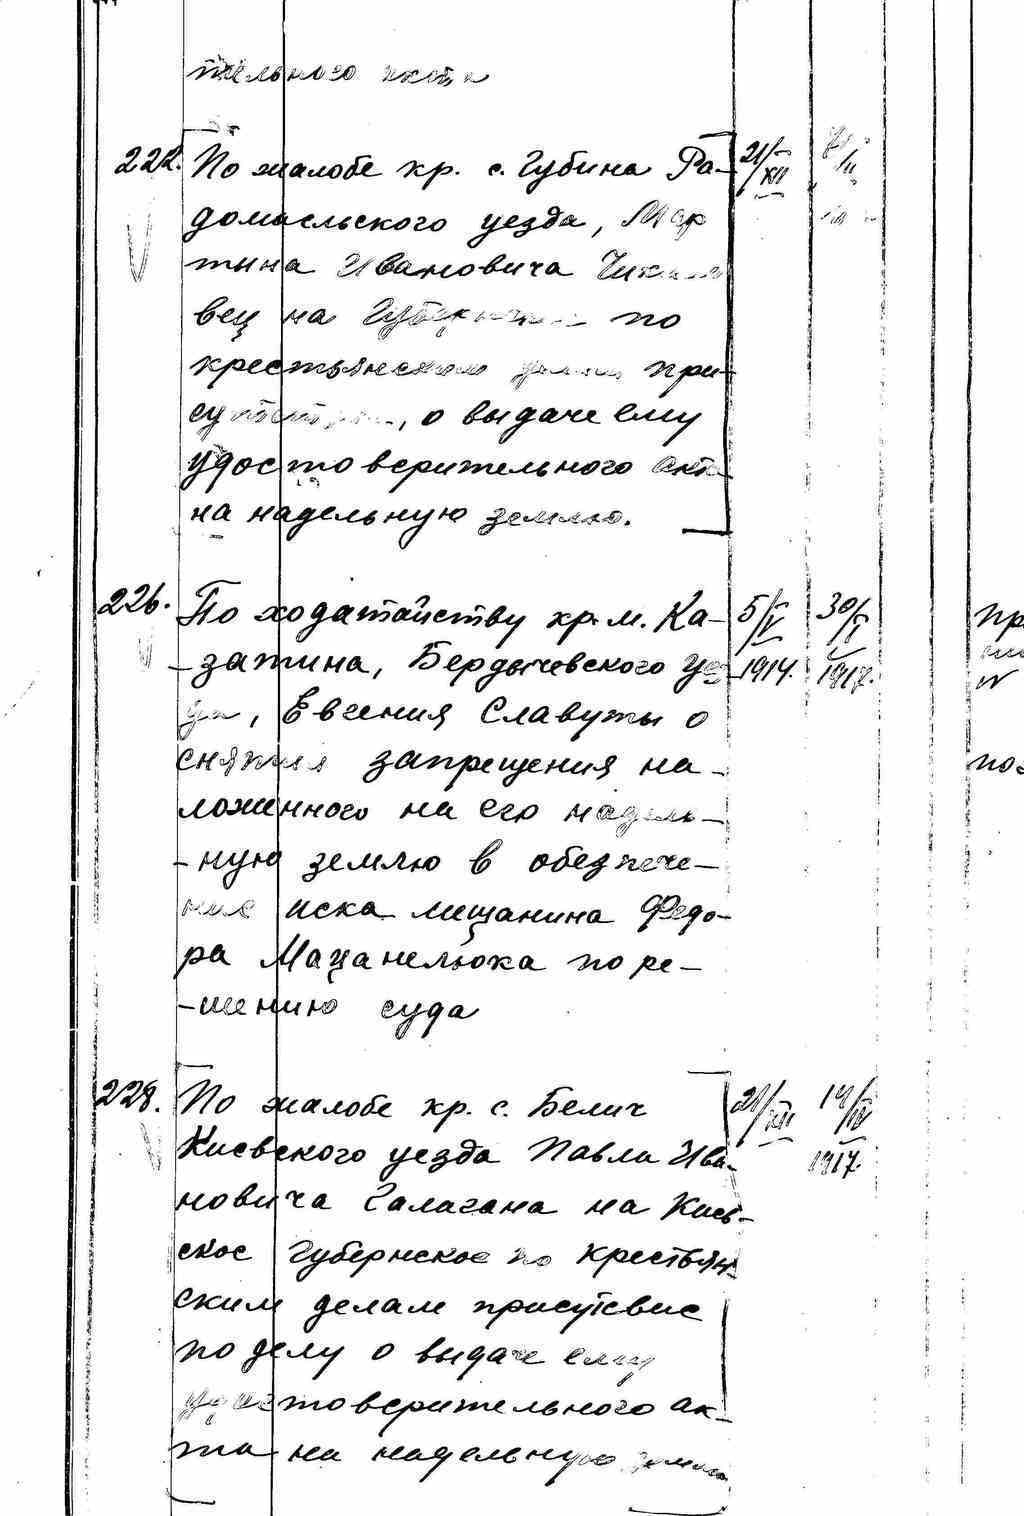 тельного акта
222. По жалобе кр. с. Губина Ра- 21/XII
домысльского уезда, Мар
тына Ивановича Чик
вец на Губернское по
крестьянским делам при-
сутствие, о выдаче ему
удостоверительного акта
на надельную землю.
226. По ходатайству кр. м. Ка- 5/V 30/V
-затина, Бердычевского уез 1914. 1917.
да, Евгения Славуты о
снятии запрещения на-
ложенного на его надель-
-ную землю в обезпече-
ние иска мещанина Федо-
ра Мацанелюка по ре-
-шению суда
228. По жалобе кр. с. Белич 21/XII 14/IV
Киевского уезда Павла Ива- 1917.
новича Галагана на Киев-
ское Губернское по крестьян-
ским делам присутсвие
по делу о выдаче ему
удостоверительного ак-
та на надельную землю